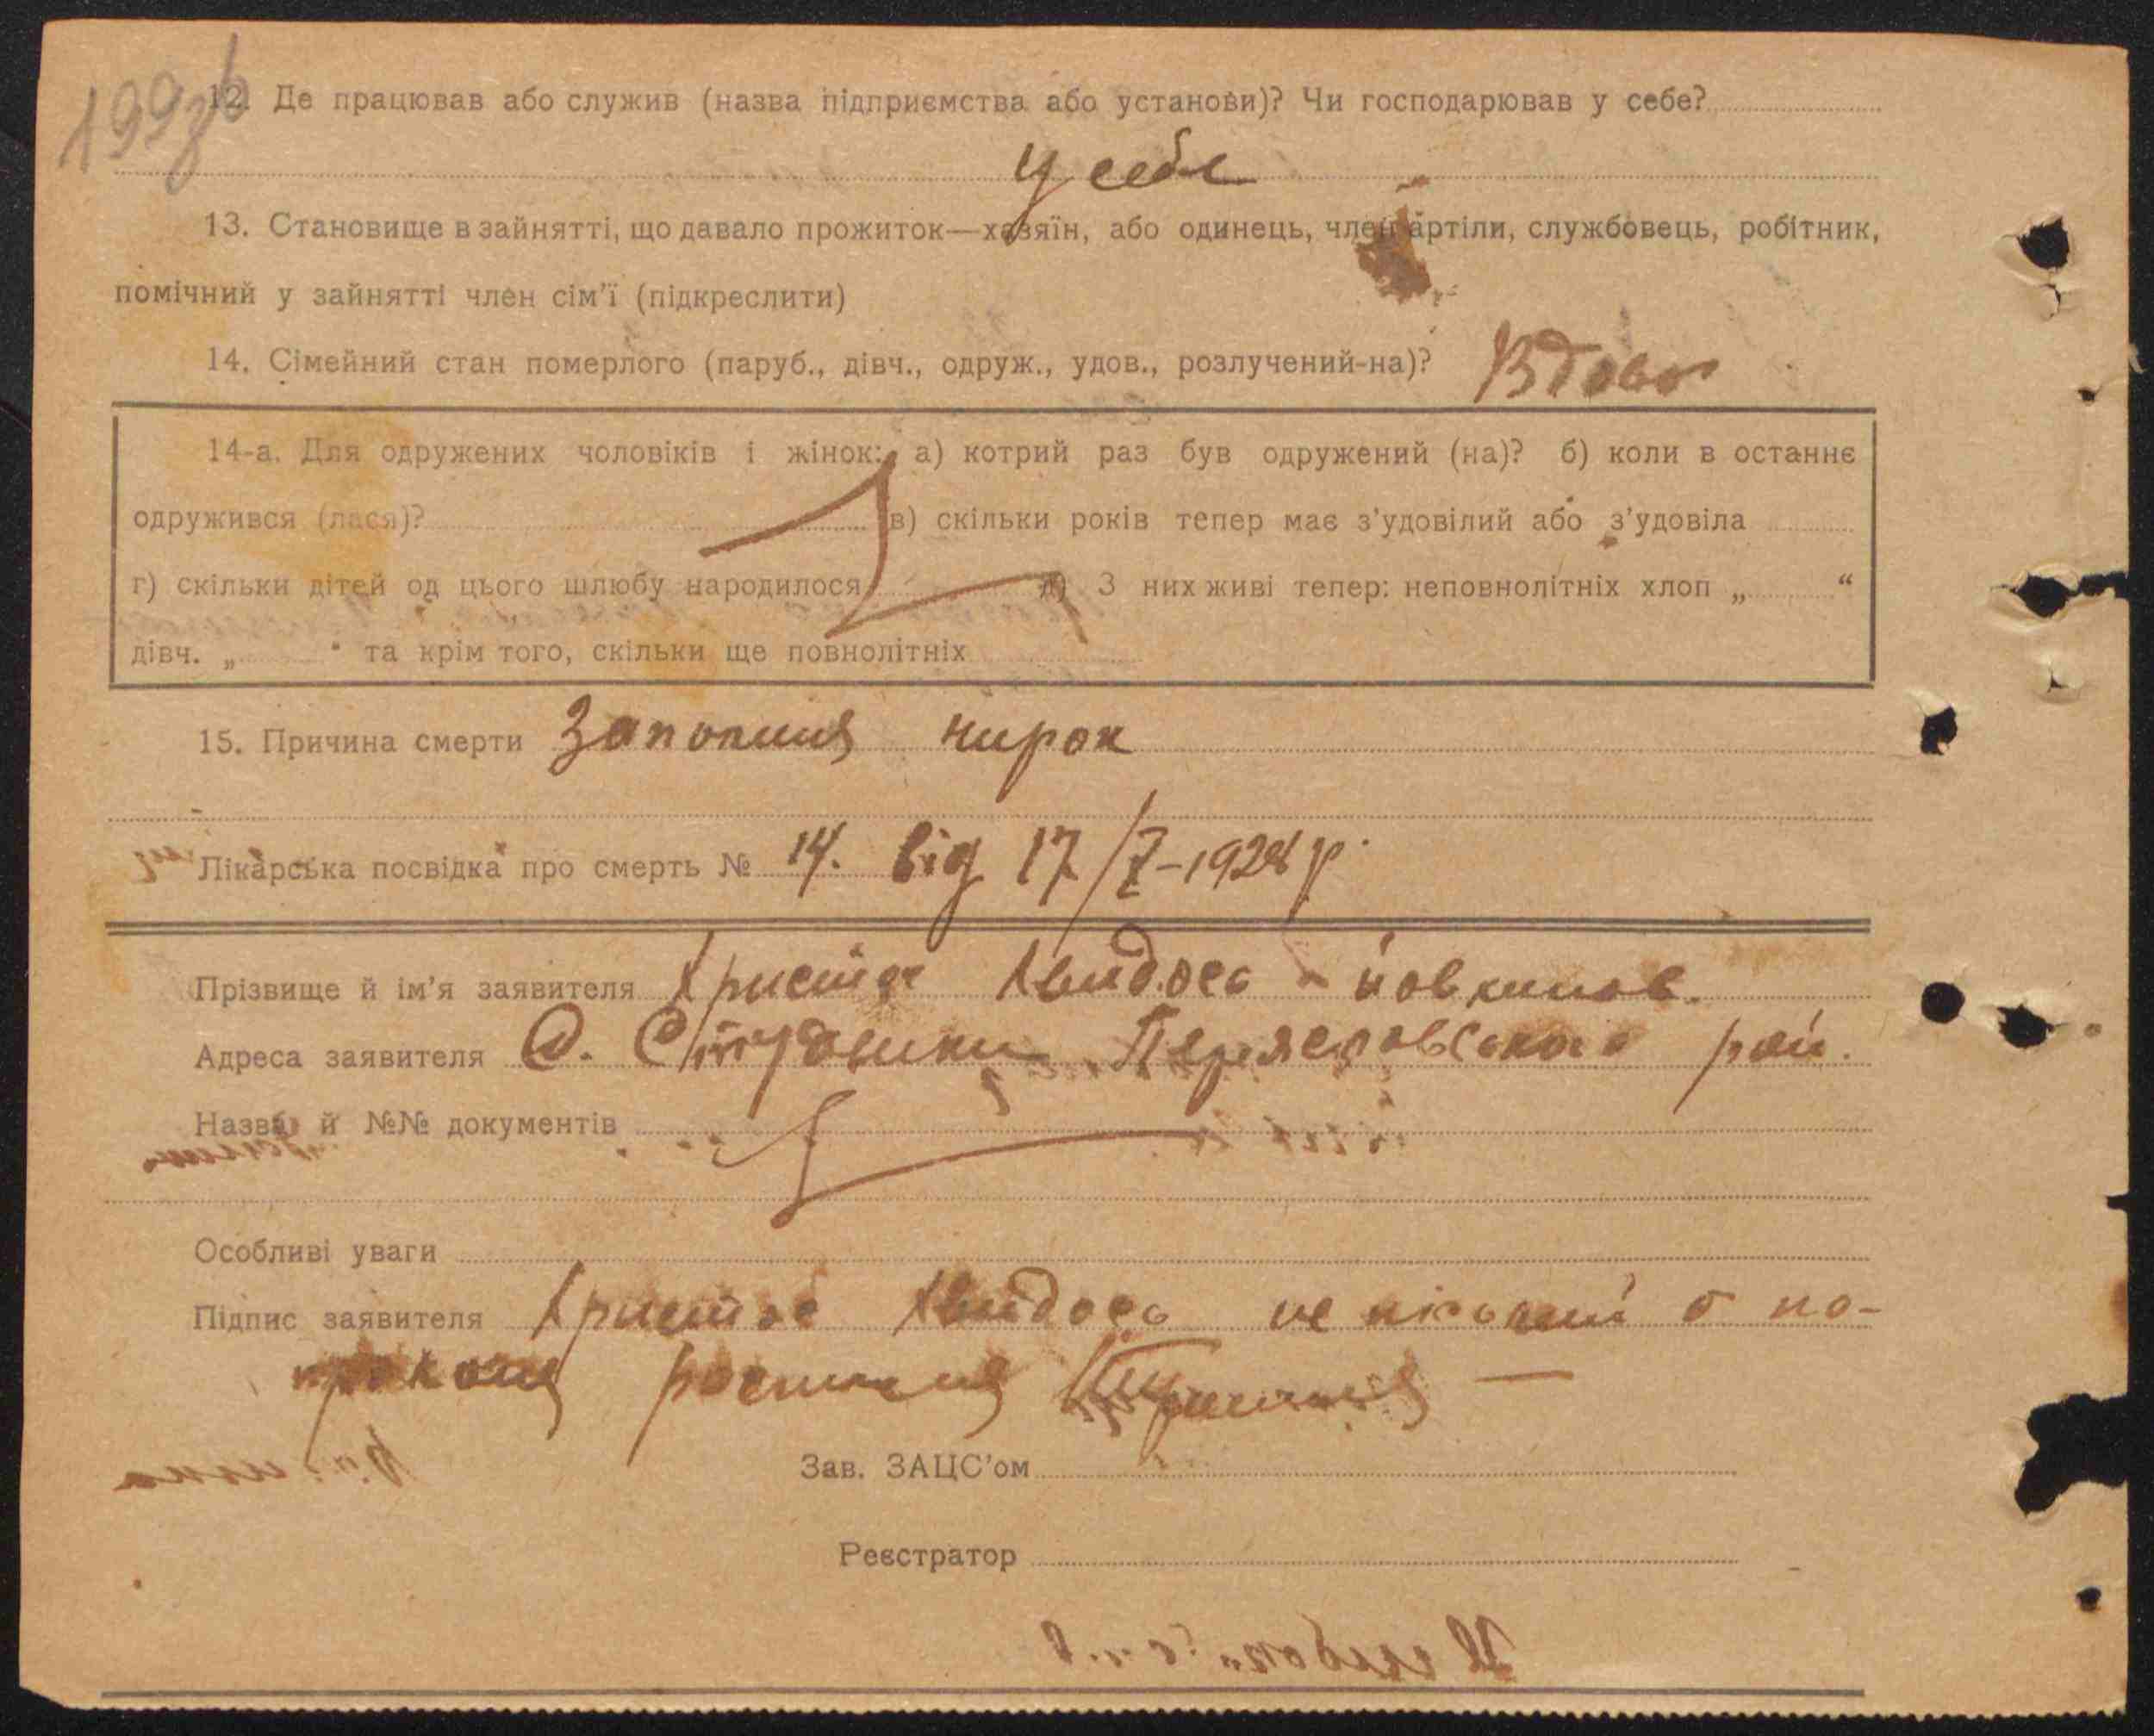 199зв
12. Де працював або служив (назва підприємства або установи)? Чи господарював у себе?
У себе
13. Становище в зайнятті, що давало прожиток—хазяїн, або одинець, член артіли, службовець, робітник,
помічний у зайнятті член сім'ї (підкреслити)
14. Сімейний стан померлого (паруб., дівч., одруж., удов., розлучений-на)? Вдова
14-а. Для одружених чоловіків і жінок: а) котрий раз був одружений (на)? б) коли в останнє
одружився (лася)? в) скільки років тепер має з'удовілий або з'удовіла
г) скільки дітей од цього шлюбу народилося д) З них живі тепер: неповнолітніх хлоп „ “
дівч. „ “ та крім того, скільки ще повнолітніх
15. Причина смерти Запалния нирок
Лікарська посвідка про смерть № 14. від 17/X-1928 р.
Прізвище й ім'я заявителя Христя
Адреса заявителя С. Студеники Переяславського рай.
Назва й №№ документів
Особливі уваги
Підпис заявителя Христя не пісьмен а по-
Зав. ЗАЦС'ом
Реєстратор